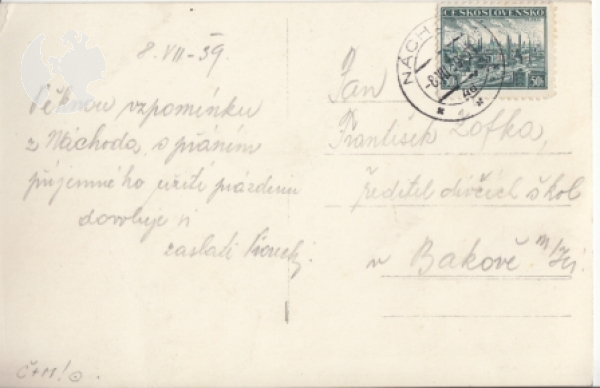 8. VII - 39.
Pěknou vzpomínku
z Náchoda, s přáním
příjemného užití prázdnin
dovoluje si
zaslati
ČESKOSLOVENSKO
50h
NÁCH
-8.VII.
Pan
František Zofka,
ředitel dívčích škol
v Bakově m/Jiz.